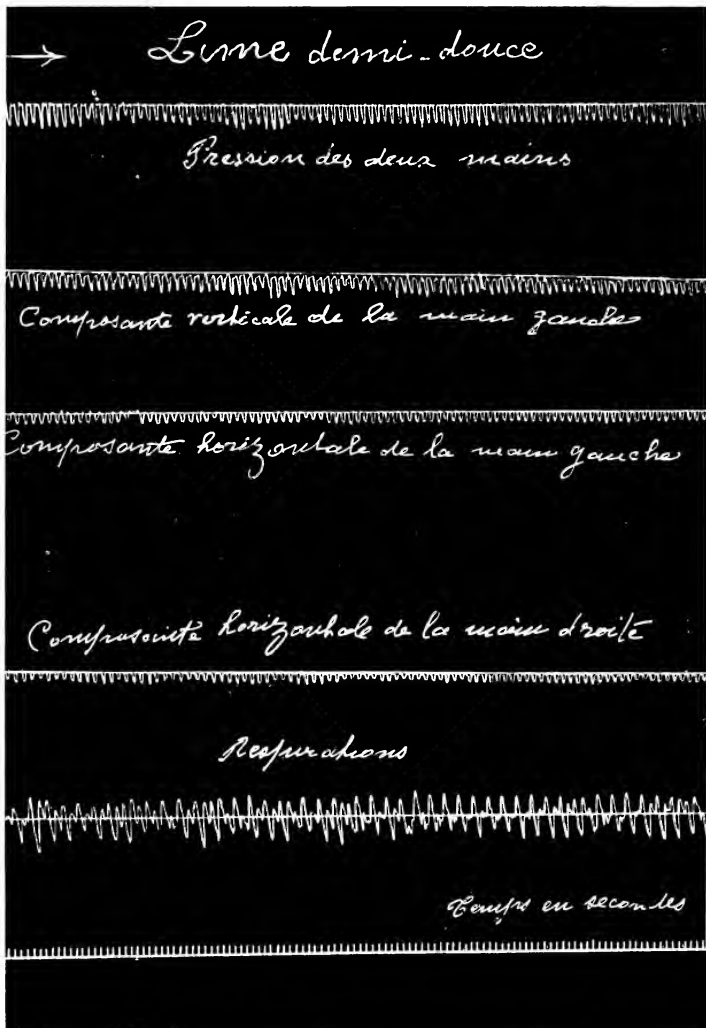 Lime demi-douce
Pression des deux mains
Composante verticale de la main gauche
Composante horizontale de la main gauche
Composante horizontale de la main droite
Respirations
Temps en secondes